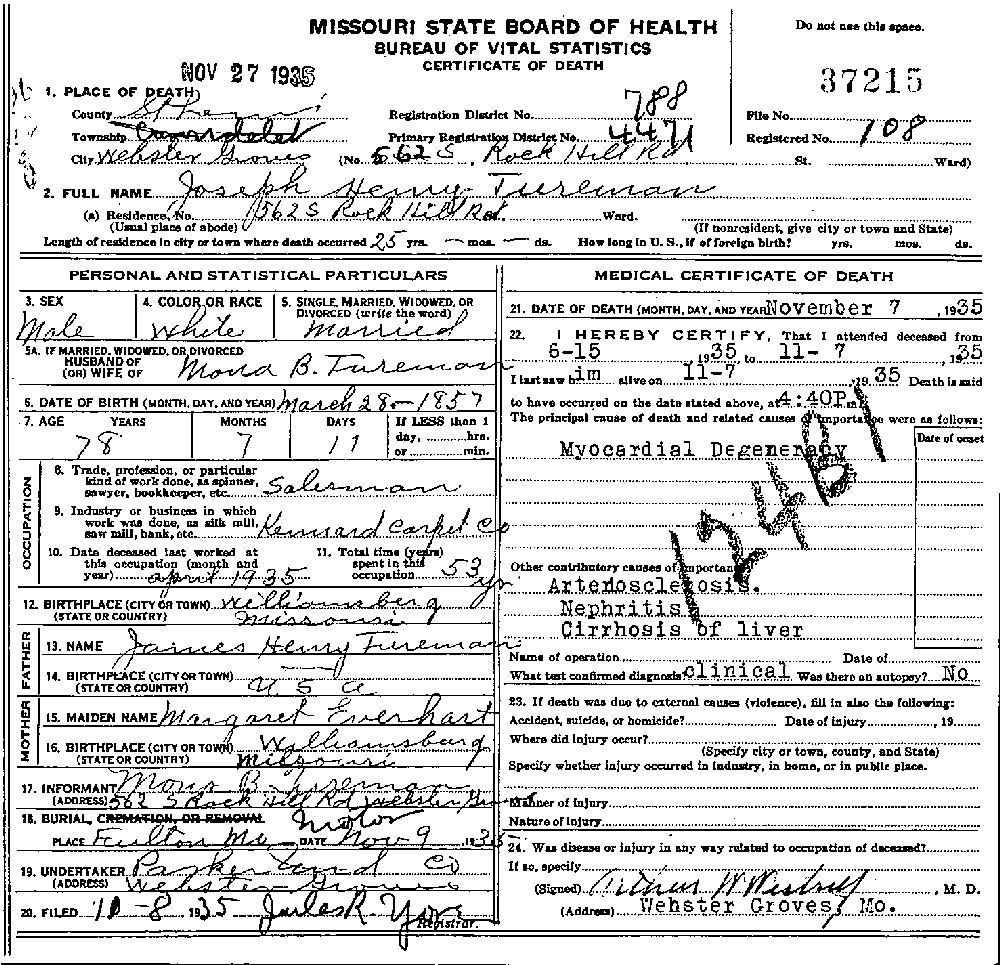 MISSOURI STATE BOARD OF HEALTH
BUREAU OF VITAL STATISTICS
CERTIFICATE OF DEATH
Do not use this space.
NOV 27 1935
37215
1. PLACE OF DEATH
County St Louis Registration District No. 788 File No.
Township Carondelet Primary Registration District No. 4471 Registered No. 108
City Webster Groves (No. 562 S. Rock Hill Rd St. Ward)
2. FULL NAME Joseph Henry Tureman
(a) Residence, No. 562 S Rock Hill Rd St. Ward.
(Usual place of abode) (If nonresident, give city or town and State)
Length of residence in city or town where death occurred 25 yrs. — mos. — ds. How long in U. S., if of foreign birth? yrs. mos. ds.
PERSONAL AND STATISTICAL PARTICULARS
3. SEX 4. COLOR OR RACE 5. SINGLE, MARRIED, WIDOWED, OR DIVORCED (write the word)
Male White Married
5A. IF MARRIED, WIDOWED, OR DIVORCED
HUSBAND OF
(OR) WIFE OF Mona B. Tureman
6. DATE OF BIRTH (MONTH, DAY, AND YEAR) March 28 - 1857
7. AGE YEARS MONTHS DAYS If LESS than 1 day, hrs. or min.
78 7 11
OCCUPATION
8. Trade, profession, or particular
kind of work done, as spinner,
sawyer, bookkeeper, etc. Salesman
9. Industry or business in which
work was done, as silk mill,
saw mill, bank, etc. Kennard Carpet Co
10. Date deceased last worked at
this occupation (month and
year) April 1935
11. Total time (years)
spent in this
occupation 53 yr
12. BIRTHPLACE (CITY OR TOWN) Williamsberg
(STATE OR COUNTRY) Missouri
FATHER
13. NAME James Henry Tureman
14. BIRTHPLACE (CITY OR TOWN) —
(STATE OR COUNTRY) U S A
MOTHER
15. MAIDEN NAME Margaret Everhart
16. BIRTHPLACE (CITY OR TOWN) Williamsburg
(STATE OR COUNTRY) Missouri
17. INFORMANT Mona B. Tureman
(ADDRESS) 562 S Rock Hill Rd Webster Groves
18. BURIAL, CREMATION, OR REMOVAL Motor
PLACE Fulton Mo DATE Nov 9, 1935
19. UNDERTAKER Parker Co
(ADDRESS) Webster Groves
20. FILED 11-8, 1935
Registrar.
MEDICAL CERTIFICATE OF DEATH
21. DATE OF DEATH (MONTH, DAY, AND YEAR) November 7, 1935
22. I HEREBY CERTIFY, That I attended deceased from
6-15, 1935 to 11-7, 1935
I last saw him alive on 11-7, 1935 Death is said
to have occurred on the date stated above, at 4:40P.m.
The principal cause of death and related causes of importance were as follows:
Date of onset
Myocardial Degeneracy
124B1
Other contributory causes of importance:
Arteriosclerosis.
Nephritis
Cirrhosis of liver
Name of operation Date of
What test confirmed diagnosis? clinical Was there an autopsy? No
23. If death was due to external causes (violence), fill in also the following:
Accident, suicide, or homicide? Date of injury , 19
Where did injury occur?
(Specify city or town, county, and State)
Specify whether injury occurred in industry, in home, or in public place.
Manner of injury
Nature of injury
24. Was disease or injury in any way related to occupation of deceased?
If so, specify
(Signed) Arthur W Westrup, M. D.
(Address) Webster Groves, Mo.